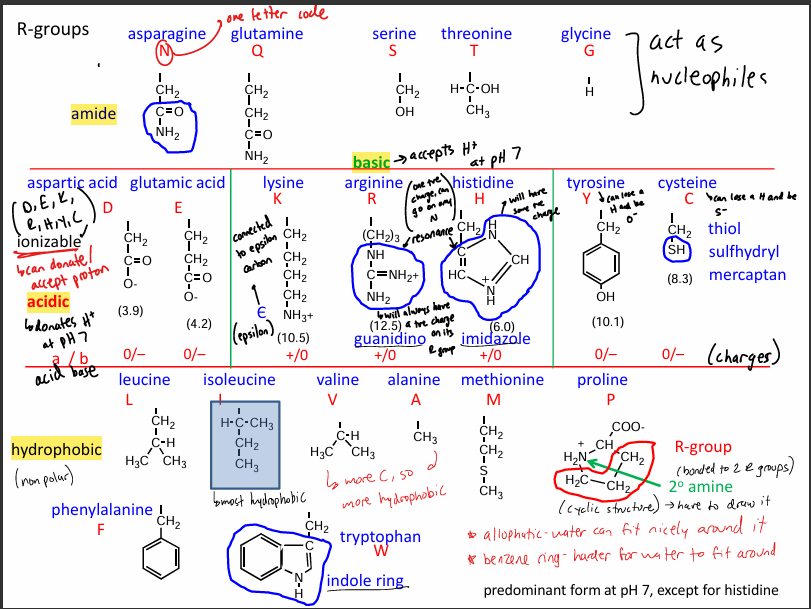 R-groups
one letter code
asparagine
glutamine
serine
threonine
glycine
N
Q
S
T
G
act as
nucleophiles
amide
CH₂
C=O
NH₂
CH₂
CH₂
C=O
NH₂
CH₂
OH
H-C-OH
CH₃
H
basic → accepts H⁺
at pH 7
aspartic acid
glutamic acid
lysine
arginine
histidine
tyrosine
cysteine
D
E
K
R
H
Y
C
(D, E, K,
R, H, Y, C)
ionizable
↳ can donate/
accept proton
acidic
↳ donates H⁺
at pH 7
CH₂
C=O
O-
(3.9)
CH₂
CH₂
C=O
O-
(4.2)
connected
to epsilon
carbon
ϵ
(epsilon)
CH₂
CH₂
CH₂
CH₂
NH₃+
(10.5)
(one +ve
charge, can
go on any
N)
resonance
(CH₂)₃
NH
C=NH₂+
NH₂
↳ will always have
a +ve charge
on its
R group
(12.5)
guanidino
will have
some +ve
charge
CH₂
H
N
C
HC
CH
+
N
H
(6.0)
imidazole
↳ can lose a
H and be
O⁻
CH₂
OH
(10.1)
↳ can lose a H and be
S⁻
CH₂
SH
(8.3)
thiol
sulfhydryl
mercaptan
a / b
0/–
0/–
+/0
+/0
+/0
0/–
0/–
(charges)
acid base
leucine
isoleucine
valine
alanine
methionine
proline
L
I
V
A
M
P
hydrophobic
(non polar)
CH₂
C-H
H₃C CH₃
H-C-CH₃
CH₂
CH₃
↳ most hydrophobic
C-H
H₃C CH₃
CH₃
↳ more C, so
more hydrophobic
CH₂
CH₂
S
CH₃
COO-
+
CH
H₂N
CH₂
H₂C
CH₂
R-group
(bonded to 2 R groups)
2° amine
(cyclic structure) → have to draw it
phenylalanine
F
CH₂
CH₂
N
H
tryptophan
W
indole ring
* allophatic - water can fit nicely around it
* benzene ring - harder for water to fit around
predominant form at pH 7, except for histidine